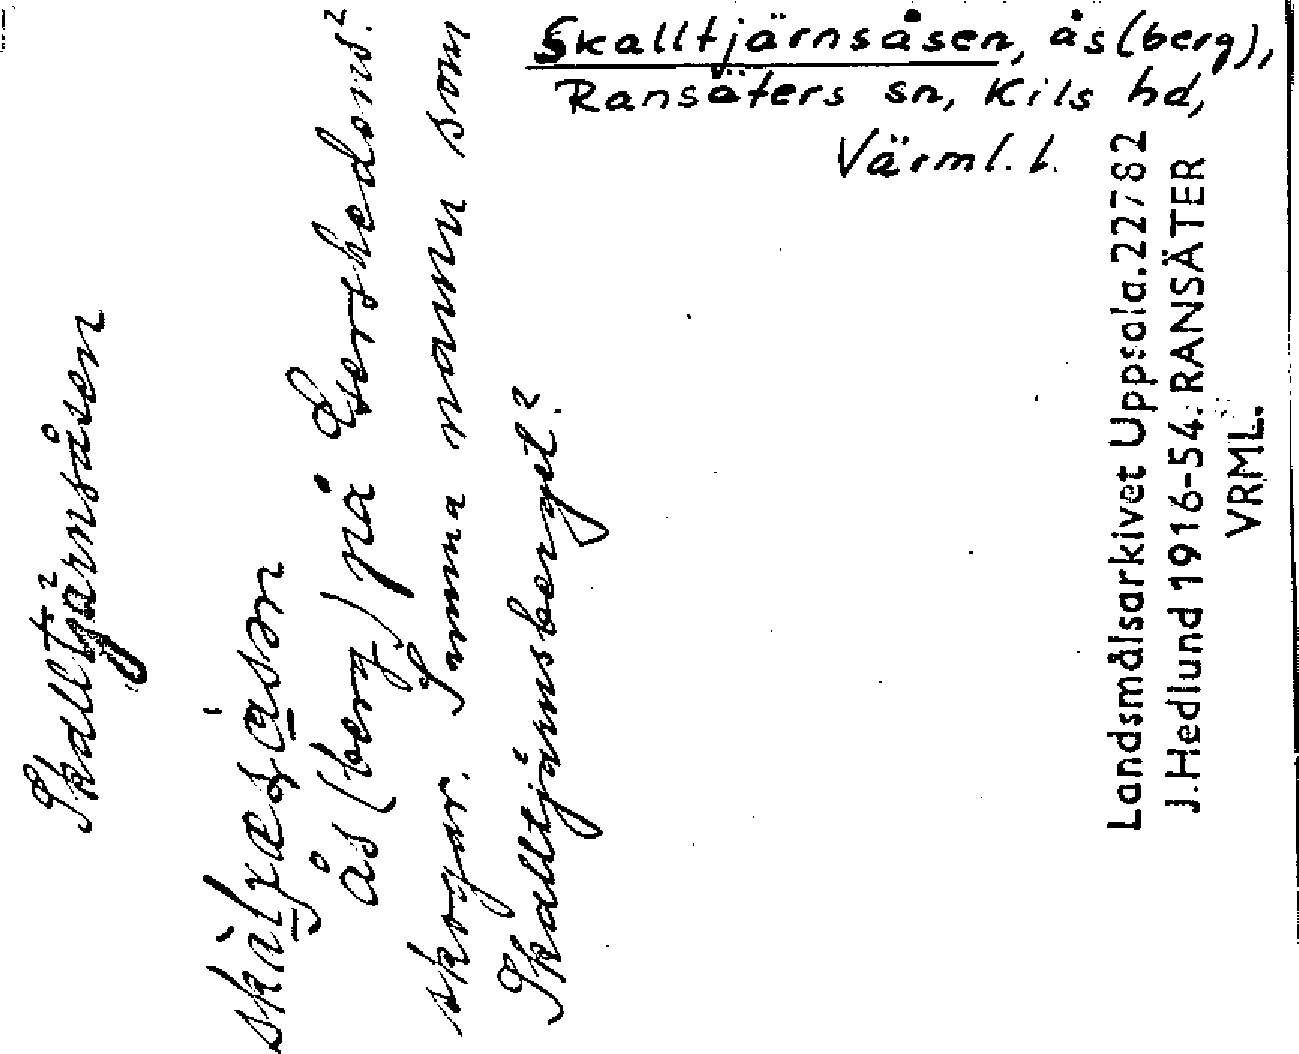 Skalltjärnsåsen, ås (berg),
Ransäters sn, Kils hd,
Värml. l.
Skalltjärnsåsen
ås (berg) på
skogar. Samma namn som
Skalltjärnsberget?
Landsmålsarkivet Uppsala. 22782
J. Hedlund 1916-54. RANSÄTER
VRML.